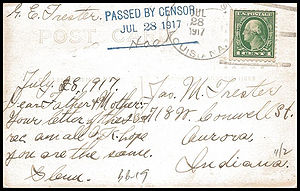 G. E. Trester
PASSED BY CENSOR
JUL 28 1917
JUL
28
1917
POST
July 28, 1917.
Dear Father & Mother:
Your letter of the
am all O.K. hope
you are the same.
Glenn
Jas. M. Trester
718 W. Conwell St.
Aurora,
Indiana